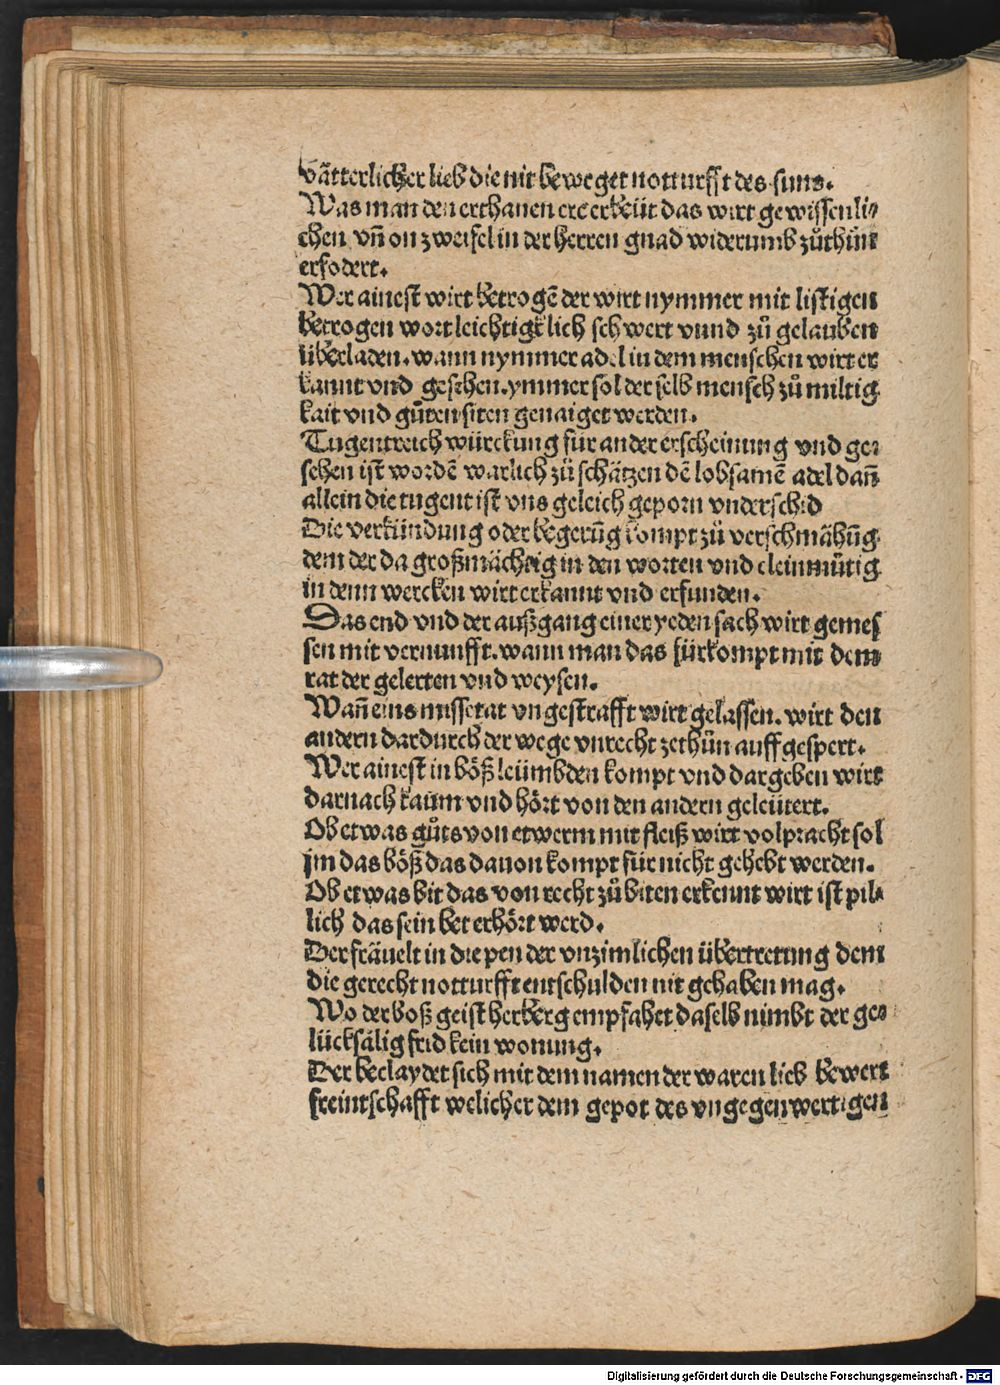 vätterlicher lieb die nit beweget notturfft des suns.
Was man den erthanen ere erbeüt das wirt gewissenli⸗
chen vñ on zweifel in der herren gnad widerumb zůthůn
erfodert.
Wer ainest wirt betrogẽ der wirt nymmer mit listigen
betrogen wort leichtigklich schwert vnnd zů gelauben
überladen. wann nymmer adel in dem menschen wirt er
kannt vnd gesehen. ymmer sol der selb mensch zů miltig
kait vnd gůten siten genaiget werden.
Tugentreich würckung für ander erscheinung vnd ge⸗
sehen ist wordẽ warlich zů schätzen dẽ lobsamẽ adel dañ
allein die tugent ist vns geleich geporn vnderschid
Die verkündung oder begerũg kompt zů verschmähũg
dem der da großmächtig in den worten vnd cleinmütig
in denn wercken wirt erkannt vnd erfunden.
Das end vnd der außgang einer yeden sach wirt gemes
sen mit vernunfft. wann man das fürkompt mit dem
rat der gelerten vnd weysen.
Wañ eins missetat vngestrafft wirt gelassen. wirt den
andern dardurch der wege vnrecht zethůn auffgespert.
Wer ainest in böß leümbden kompt vnd dargeben wirt
darnach kaum vnd hört von den andern geleütert.
Ob etwas gůts von etwerm mit fleiß wirt volpracht sol
jm das böß das dauon kompt für nicht gehebt werden.
Ob etwas bit das von recht zů biten erkennt wirt ist pil⸗
lich das sein bet erhört werd.
Der fräuelt in die pen der vnzimlichen übertretung dem
die gerecht notturfft entschulden nit gehaben mag.
Wo der boß geist herberg empfahet daselb nimbt der ge⸗
lücksälig frid kein wonung.
Der beclaydet sich mit dem namen der waren lieb bewert
freintschafft welicher dem gepot des vngegenwertigen
Digitalisierung gefördert durch die Deutsche Forschungsgemeinschaft - DFG